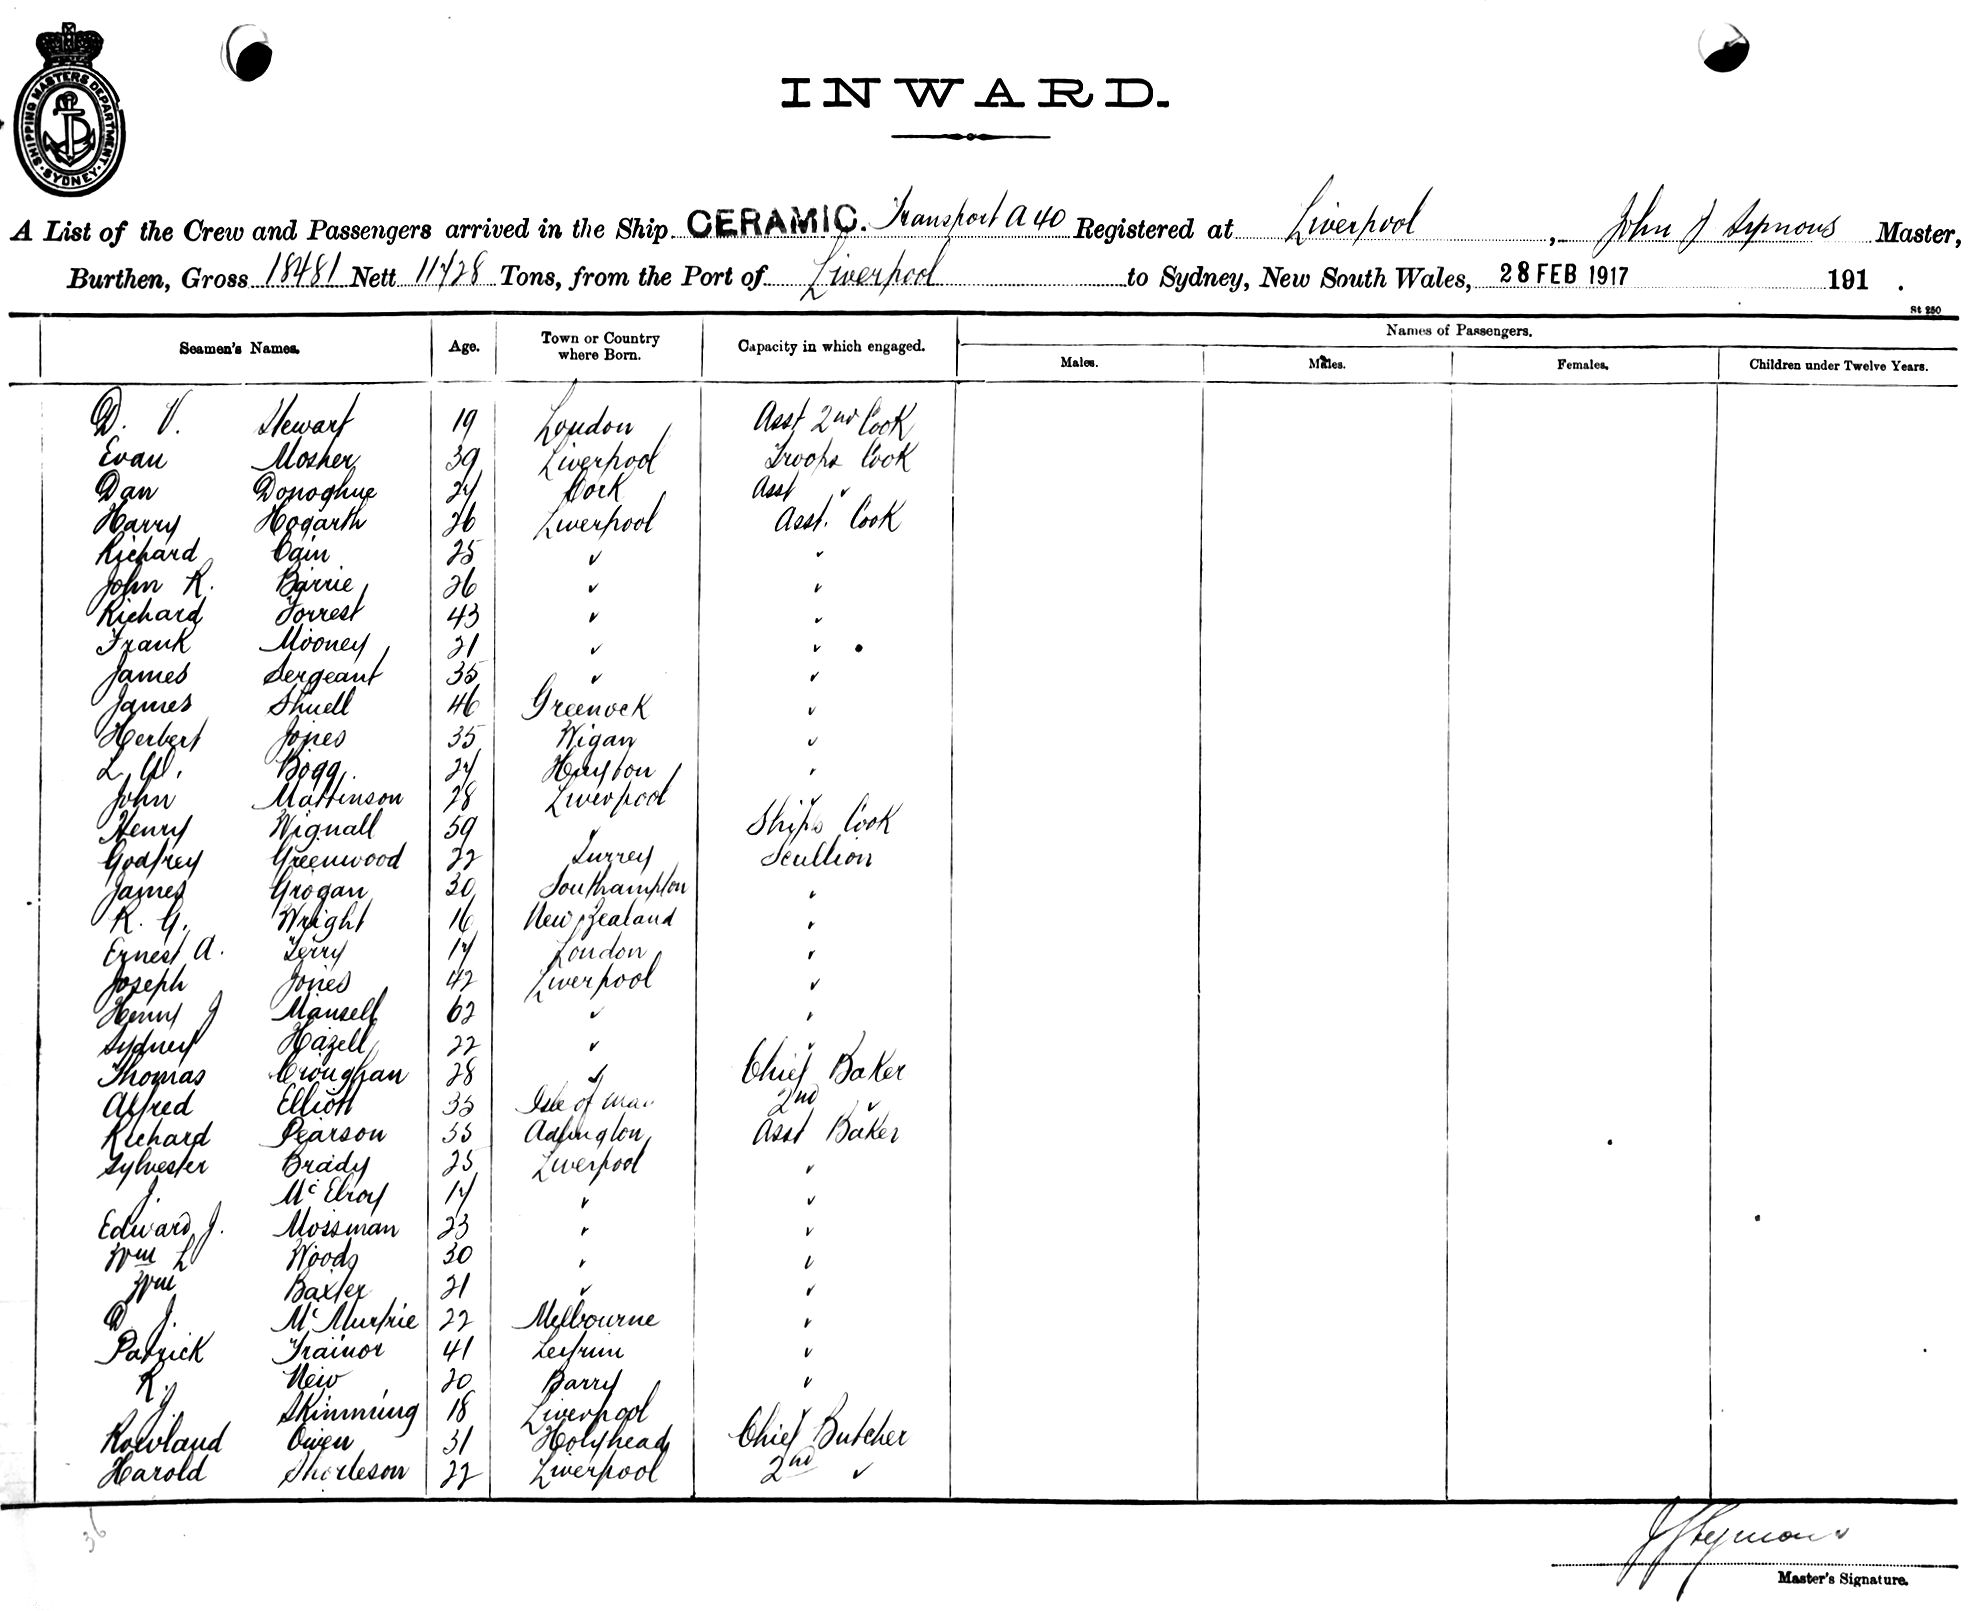 SHIPPING MASTERS DEPARTMENT. SYDNEY.
INWARD.
A List of the Crew and Passengers arrived in the Ship CERAMIC. Transport A 40 Registered at Liverpool, John J Symons Master,
Burthen, Gross 18481 Nett 11728 Tons, from the Port of Liverpool to Sydney, New South Wales, 28 FEB 1917 191 .
St 250
Seamen's Names. Age. Town or Country where Born. Capacity in which engaged. Names of Passengers.
Males. Males. Females. Children under Twelve Years.
D. V. Stewart 19 London Asst 2nd Cook
Evan Mosher 39 Liverpool Troops Cook
Dan Donoghue 27 Cork Asst "
Harry Hogarth 26 Liverpool Asst. Cook
Richard Cain 25 " "
John R. Barrie 26 " "
Richard Forrest 43 " "
Frank Mooney 21 " "
James Sergeant 35 " "
James Shuell 46 Greenock "
Herbert Jones 35 Wigan "
L. W. Bogg. 27 "
John Mattinson 28 Liverpool "
Henry Wignall 59 " Ships Cook
Godfrey Greenwood 22 Surrey Scullion
James Grogan 30 Southampton "
R. G. Wright 16 New Zealand "
Ernest A. Terry 17 London "
Joseph Jones 42 Liverpool "
Henry J Mansell 62 " "
Sydney Hazell 22 " "
Thomas Croughan 28 " Chief Baker
Alfred Elliott 35 Isle of Man 2nd "
Richard Pearson 35 Adlington Asst Baker
Sylvester Brady 25 Liverpool "
J. McElroy 17 " "
Edward J. Mossman 23 " "
Wm L Woods 30 " "
Wm Baxter 21 " "
D J. McMurtrie 22 Melbourne "
Patrick Trainor 41 Leitrim "
R. New 20 Barry "
J. Skimming 18 Liverpool "
Rowland Owen 31 Holyhead Chief Butcher
Harold 22 Liverpool 2nd "
36
J J Symons
Master's Signature.